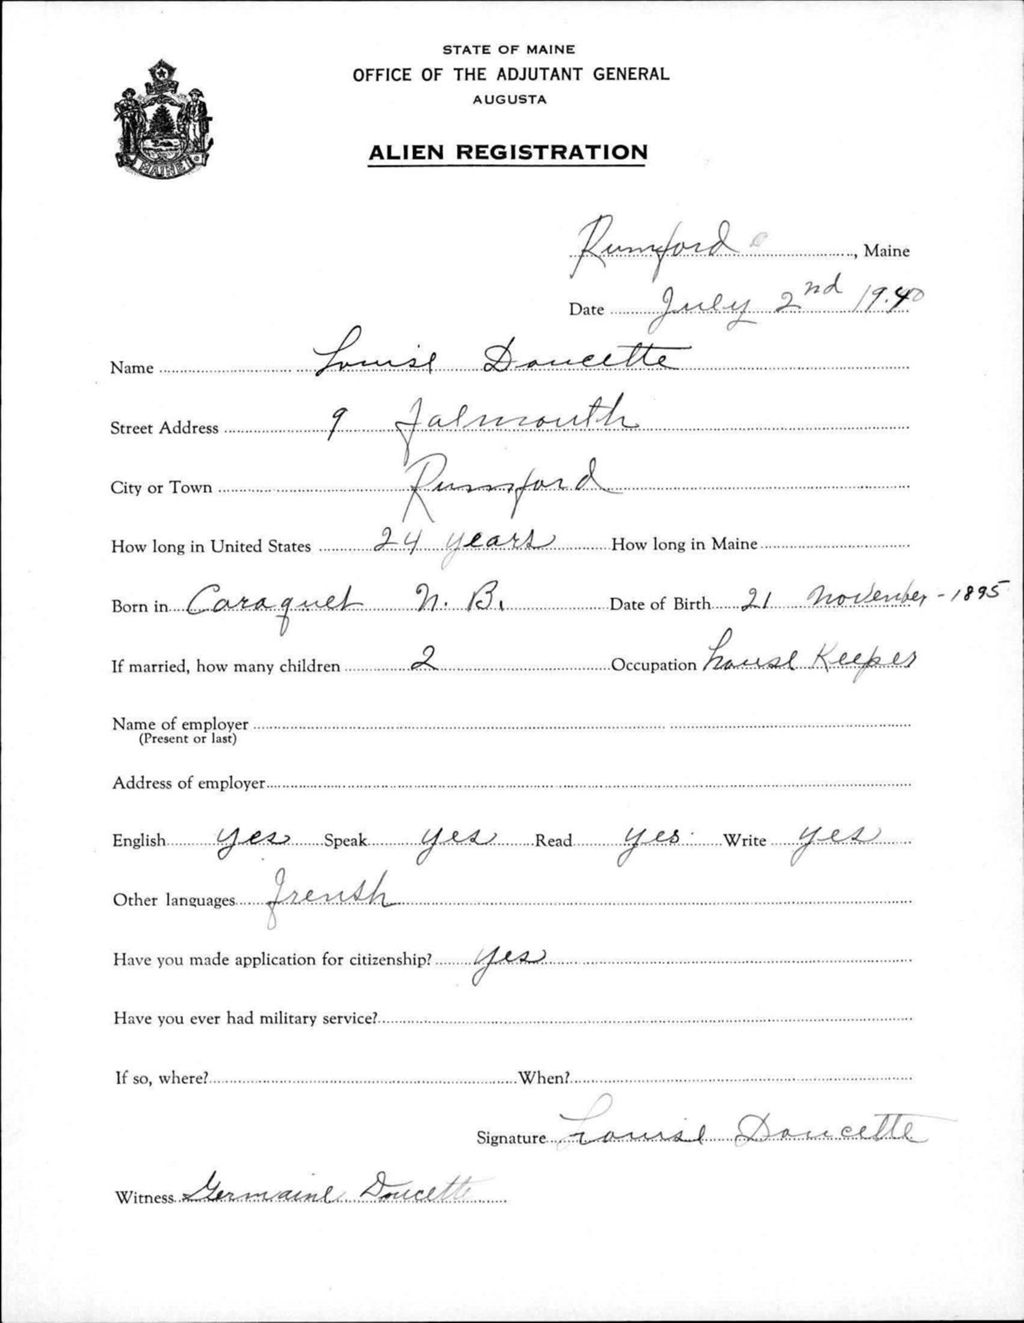 STATE OF MAINE
OFFICE OF THE ADJUTANT GENERAL
AUGUSTA
ALIEN REGISTRATION
MAINE
Rumford, Maine
Date July 2nd 1940
Name Louise Doucette
Street Address 9 Falmouth
City or Town Rumford
How long in United States 24 years How long in Maine
Born in Caraquet N. B. Date of Birth 21 November - 1895
If married, how many children 2 Occupation house Keeper
Name of employer
(Present or last)
Address of employer
English yes Speak yes Read yes Write yes
Other languages Frensh
Have you made application for citizenship? yes
Have you ever had military service?
If so, where? When?
Signature Louise Doucette
Witness Germaine Doucette